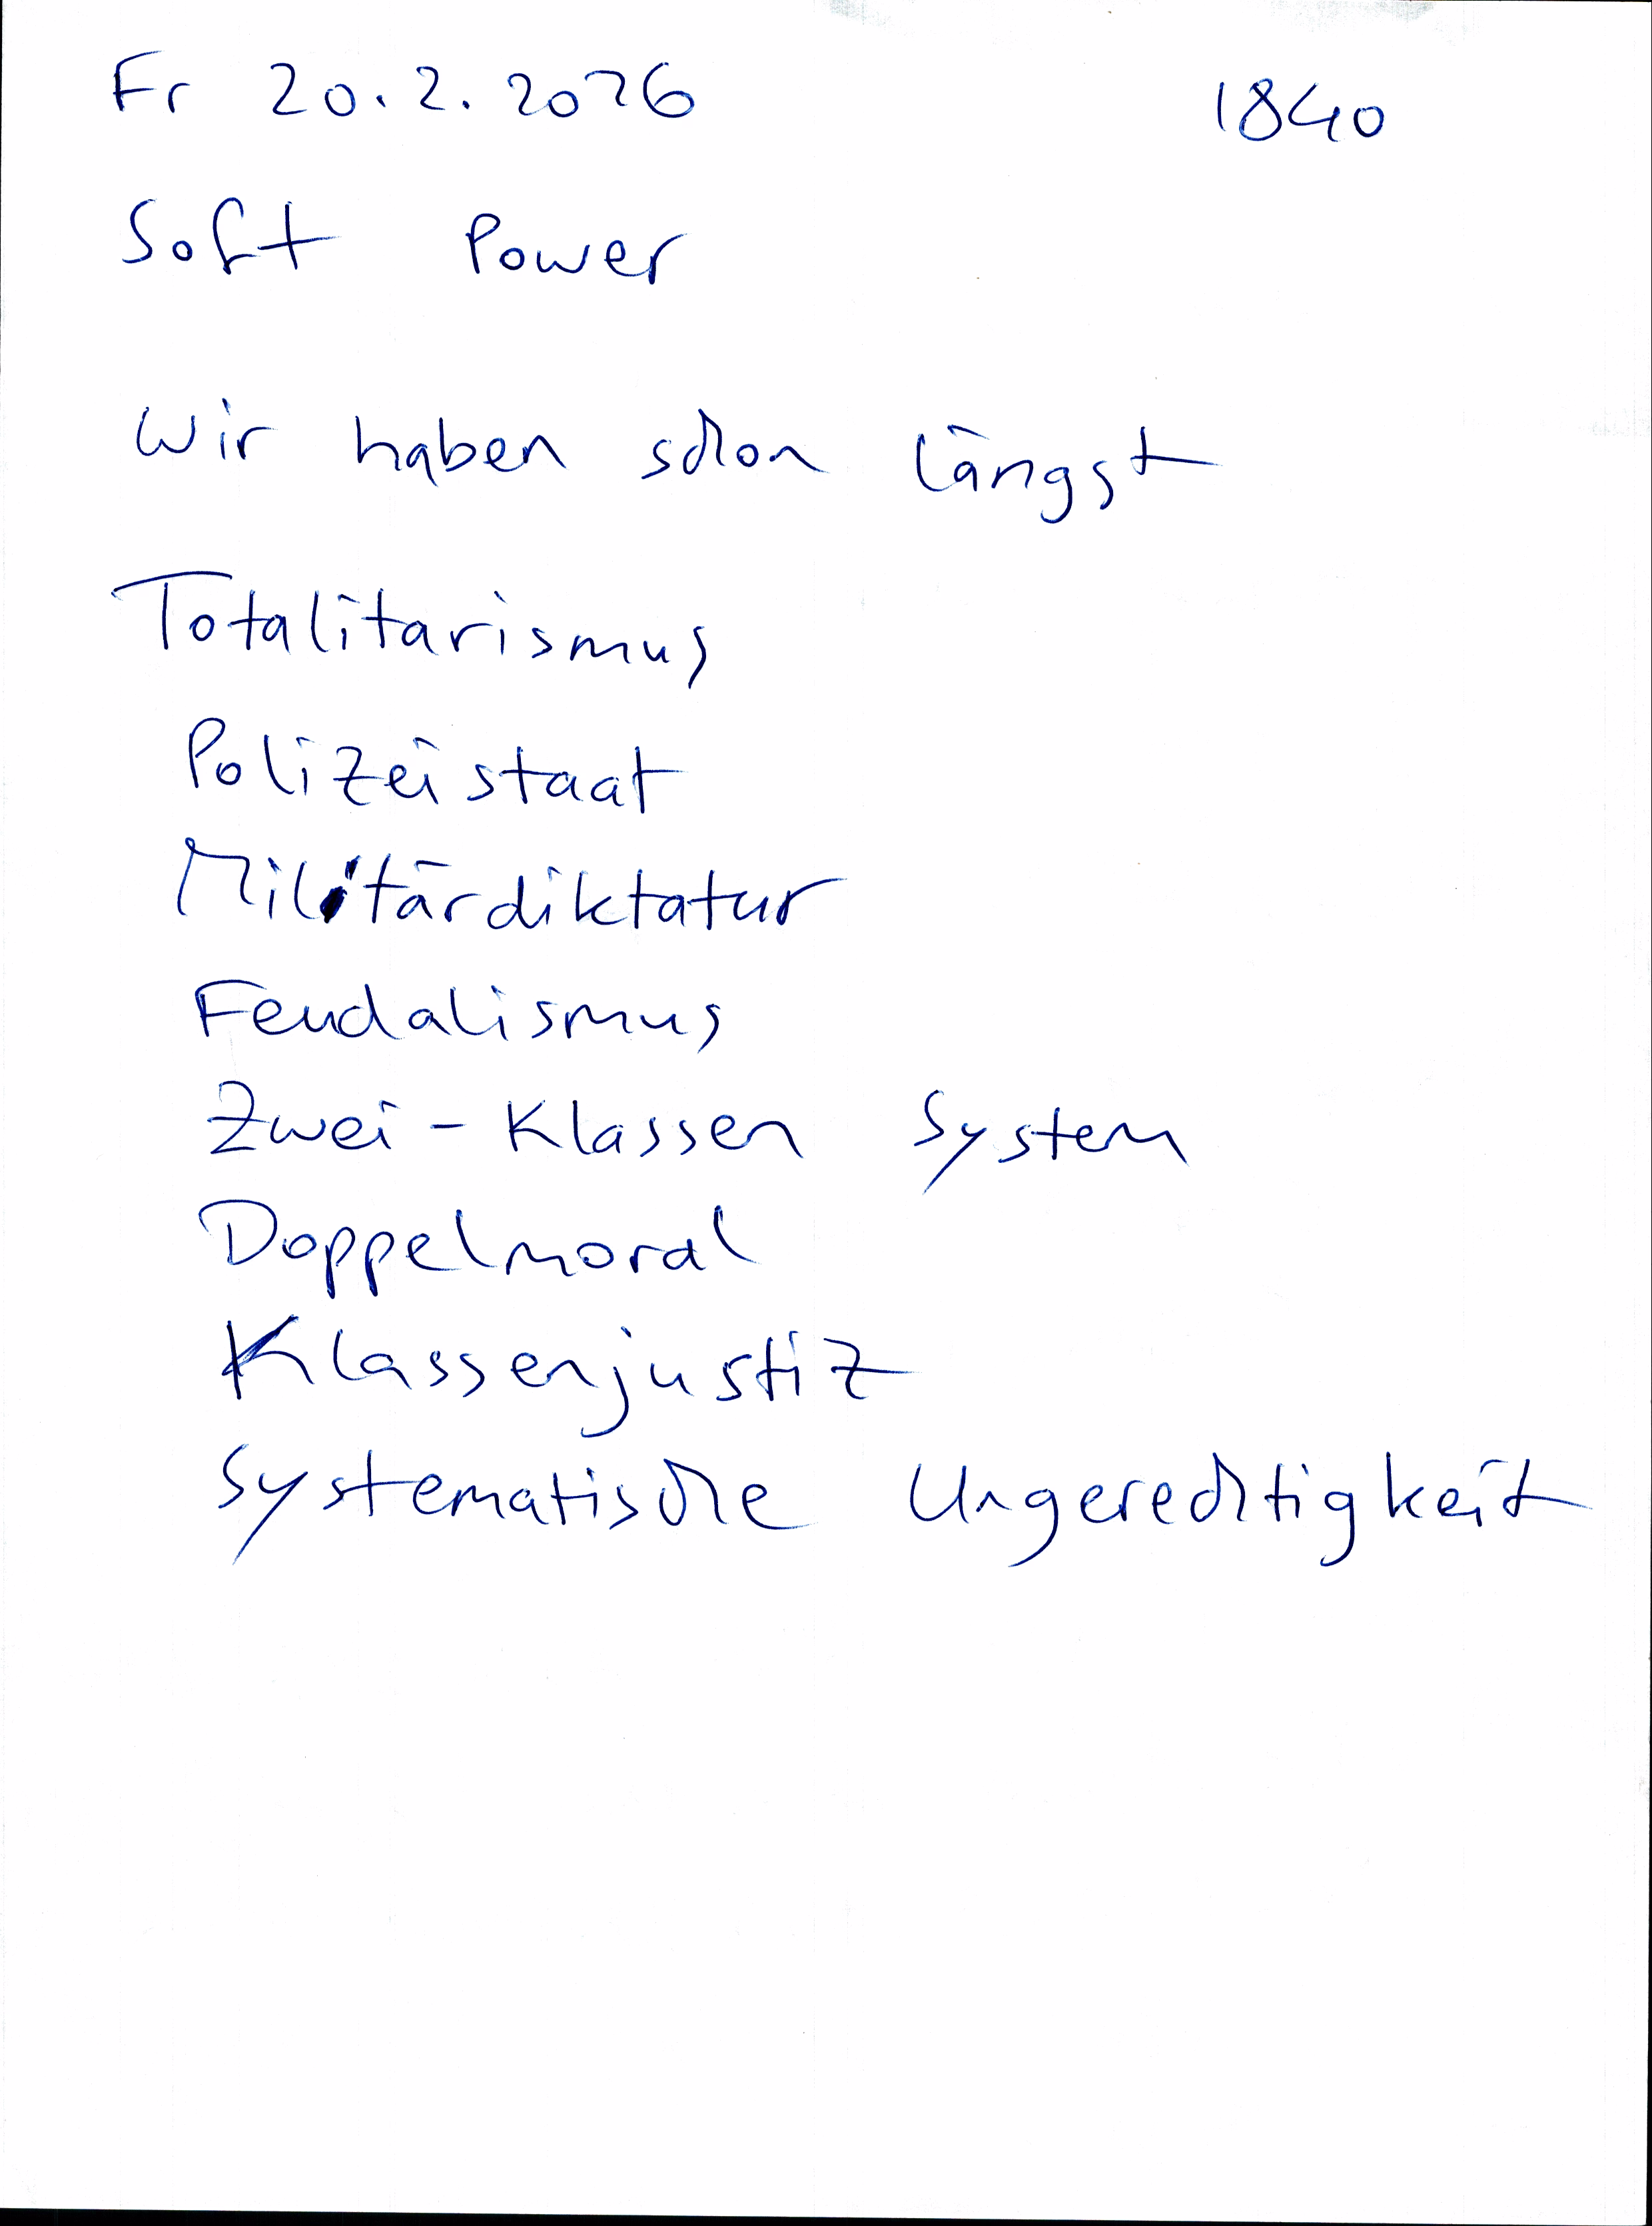 Fr 20.2.2026 1840
Soft Power
Wir haben schon längst
Totalitarismus
Polizeistaat
Militärdiktatur
Feudalismus
Zwei-Klassen System
Doppelmoral
Klassenjustiz
Systematische Ungerechtigkeit